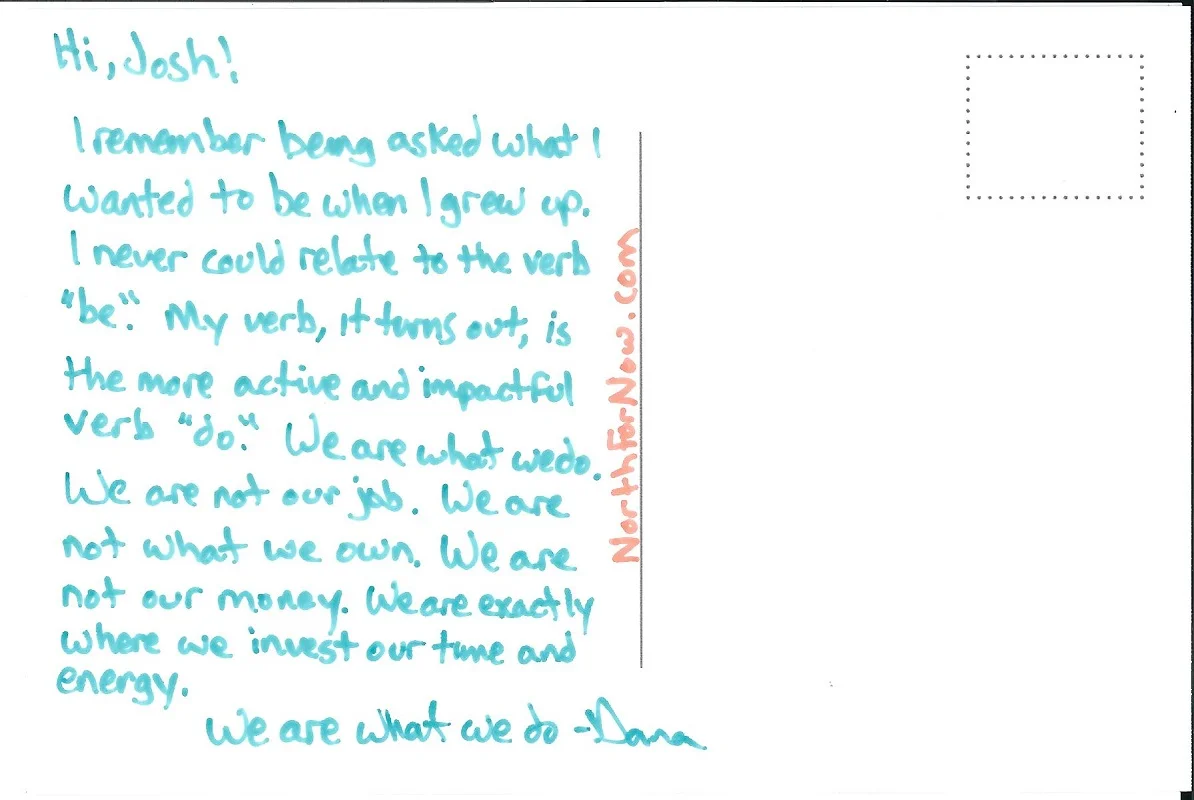 Hi, Josh!
I remember being asked what I
wanted to be when I grew up.
I never could relate to the verb
"be." My verb, it turns out, is
the more active and impactful
verb "do." We are what we do.
We are not our job. We are
not what we own. We are
not our money. We are exactly
where we invest our time and
energy.
We are what we do -Dana
NorthForNow.com